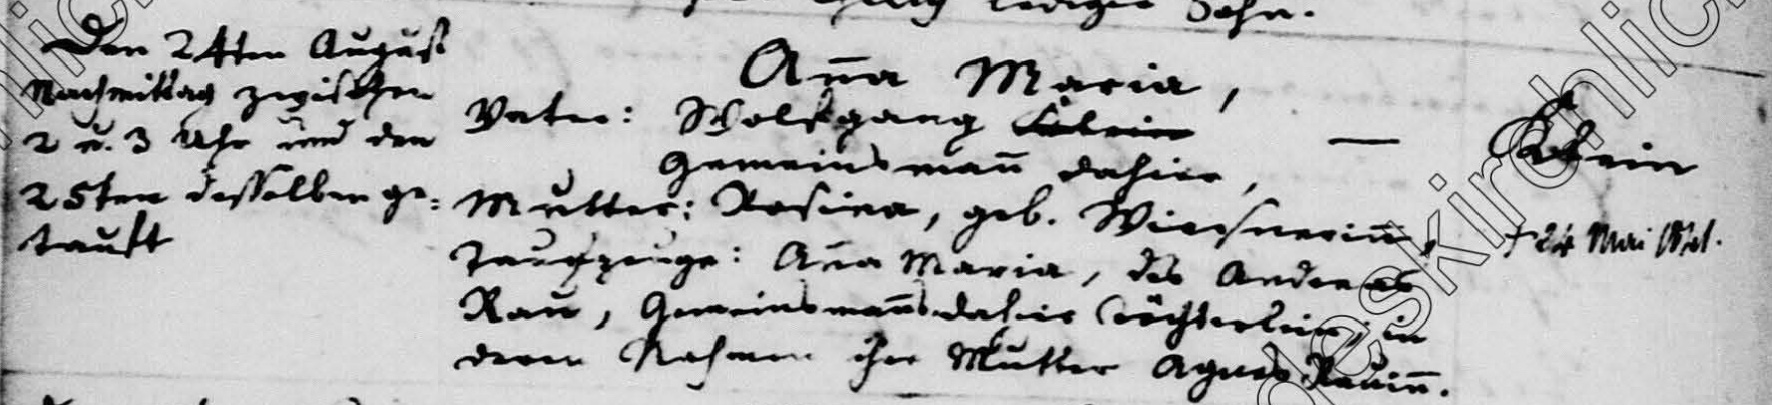 lediger Sohn.
Den 24ten August
Nachmittag zwischen
2 u. 3 Uhr und den
25ten desselben ge-
tauft
Aña Maria,
Vater: Wolfgang Klein — Klein
Gemeinsmañ dahier,
Mutter: Rosina, geb. Wiessneriñ,
† 24 Mai
Taufzeuge: Aña Maria, des Andreas
Rau, Gemeinsmañs dahier Töchterlein, in
deren Nahmen ihre Mutter Agnes Rauiñ.